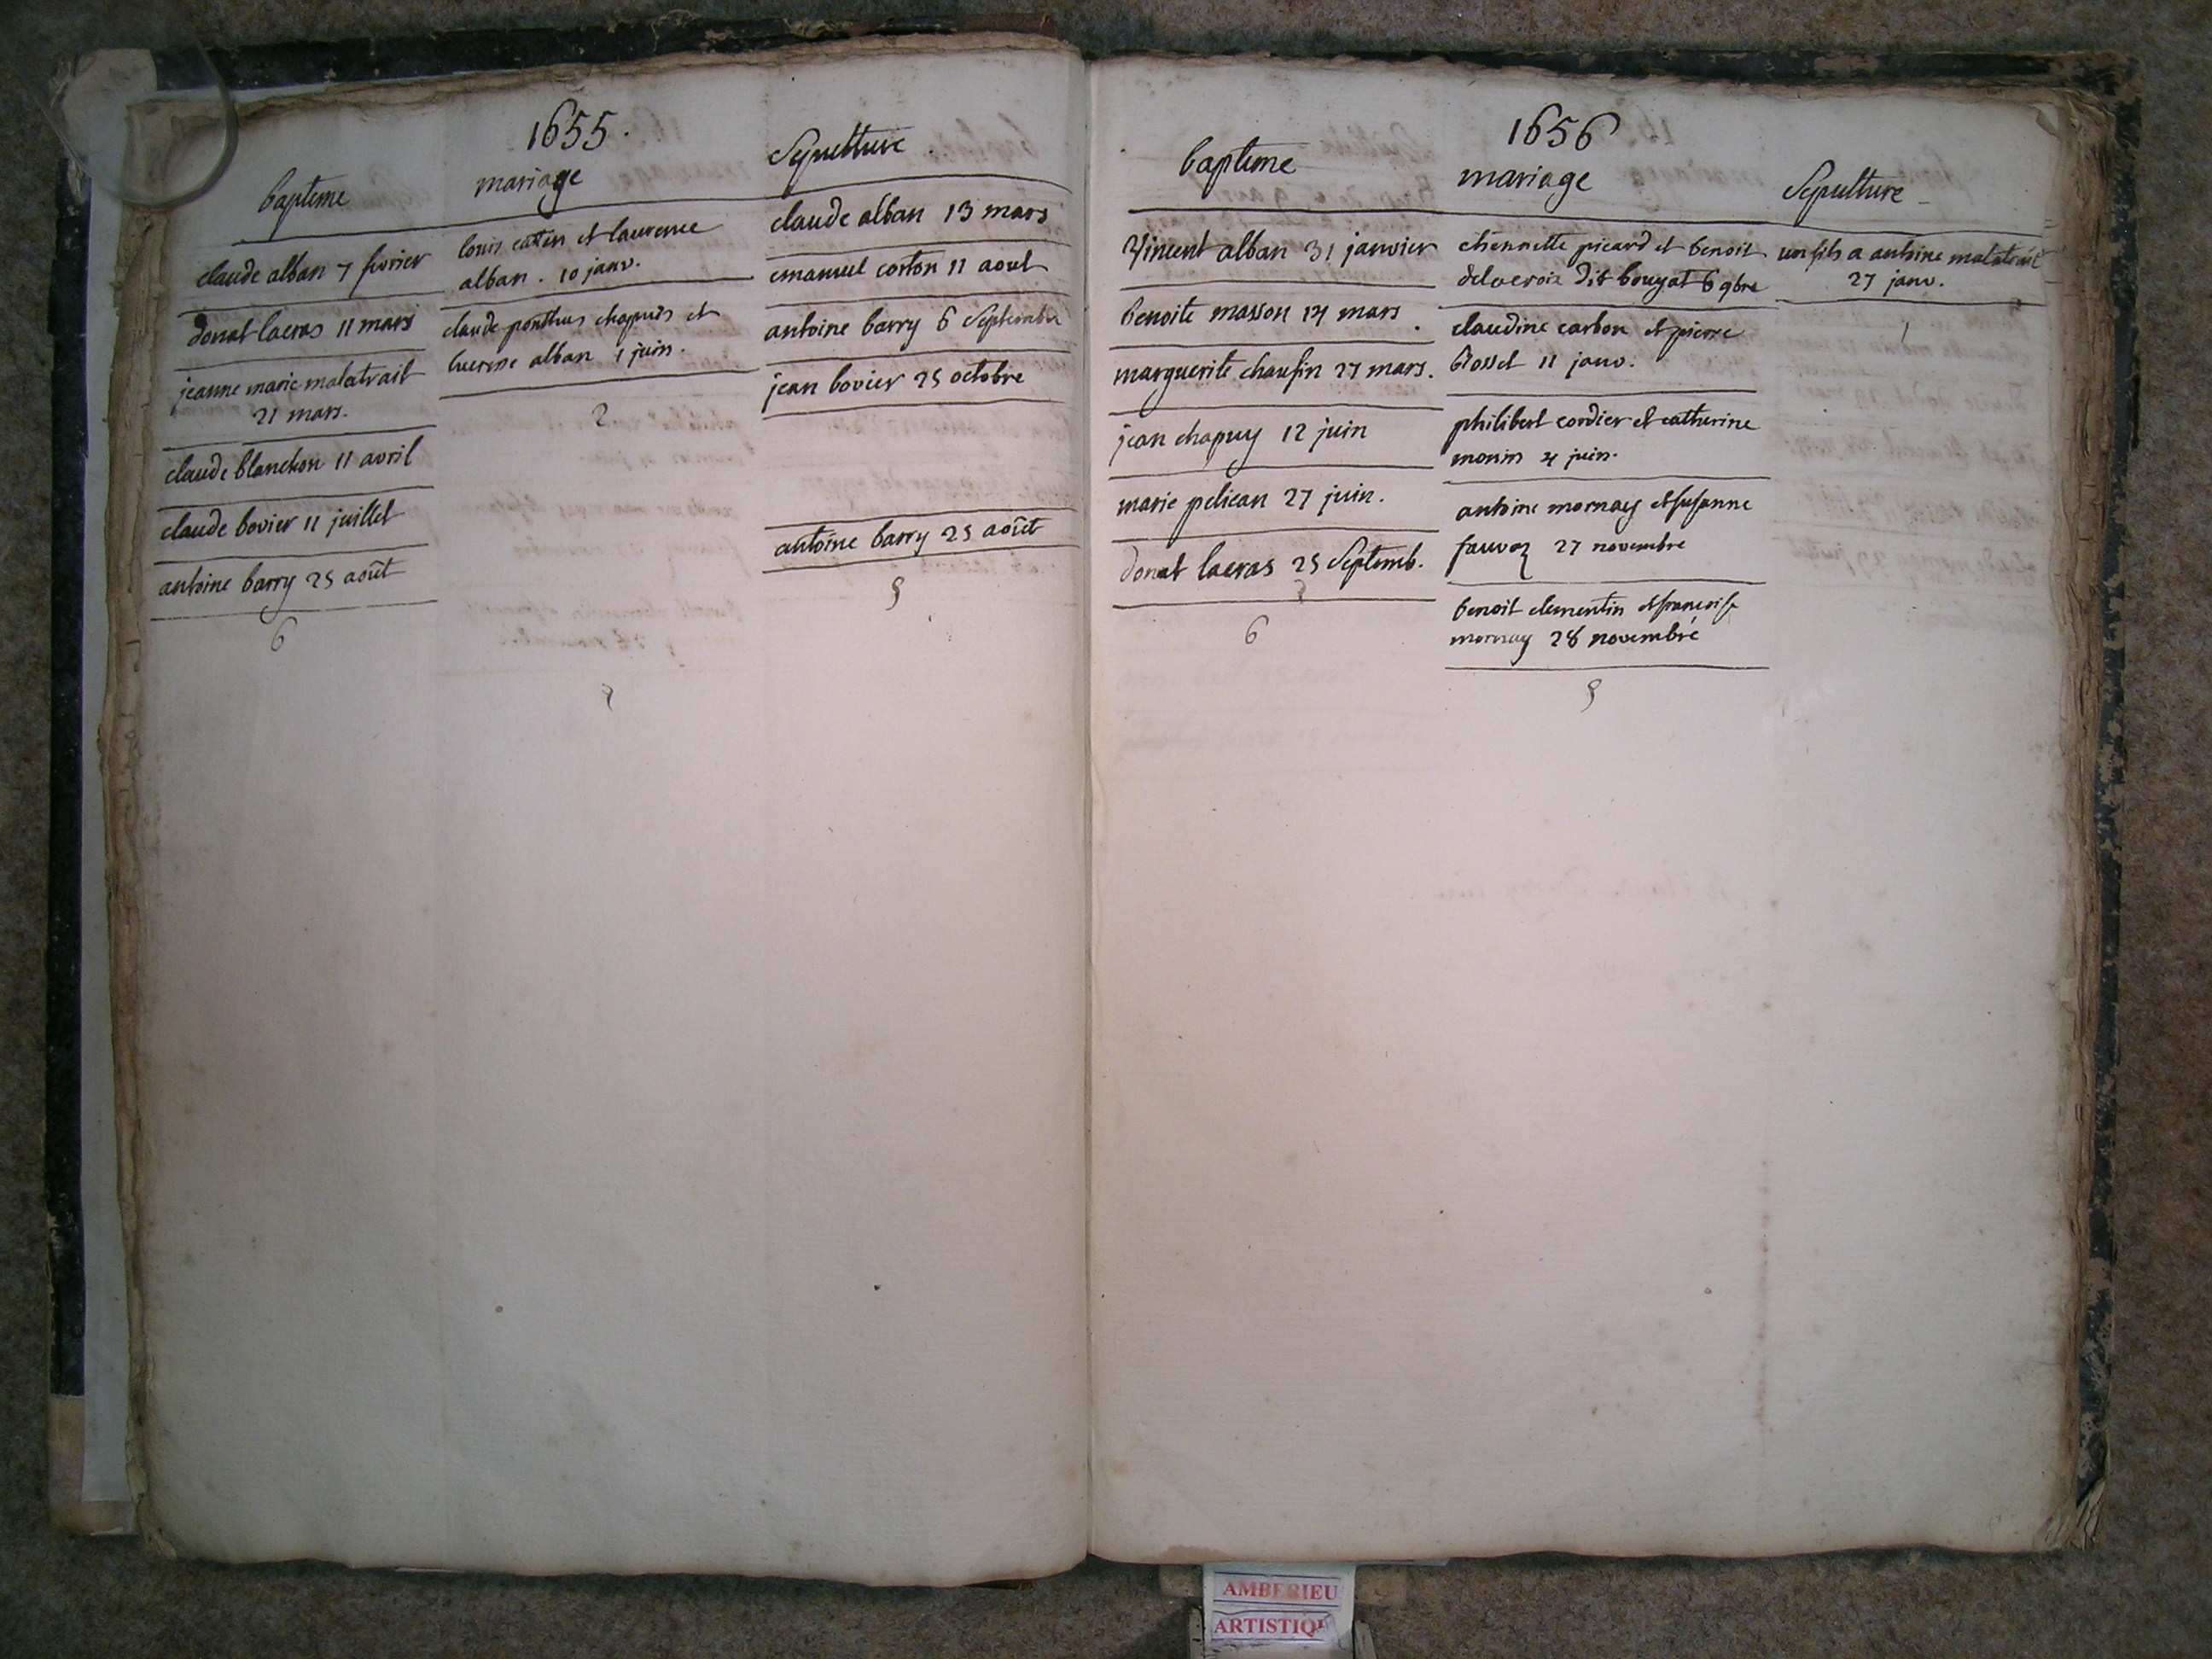 1655.
bapteme
claude alban 7 fevrier
donat lacras 11 mars
jeanne marie malatrait
21 mars.
claude blanchon 11 avril
claude bovier 11 juillet
antoine barry 25 août
6
mariage
louis et laurence
alban . 10 janv.
claude ponthus chapuis et
alban 1 juin.
2
Sepulture .
claude alban 13 mars
emanuel corton 11 aout
antoine barry 6 Septembre
jean bovier 25 octobre
antoine barry 25 août
5
1656
bapteme
Vincent alban 31 janvier
benoite masson 14 mars .
marguerite chaufin 27 mars.
jean chapuy 12 juin
marie pelican 27 juin.
donat lacras 25 Septemb.
6
mariage
picard et benoit
delacroix dit bouyat 6 9bre
claudine carbon et pierre
11 janv.
philibert cordier et catherine
monin 4 juin.
antoine mornay et susanne
27 novembre
benoit clementin et francoise
mornay 28 novembre
5
Sepulture
un fils a antoine malatrait
27 janv.
1
AMBERIEU
ARTISTIQU